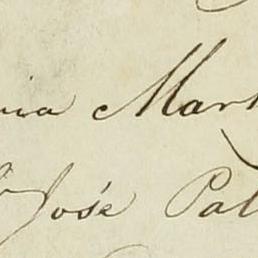 ria Mart
José Pal